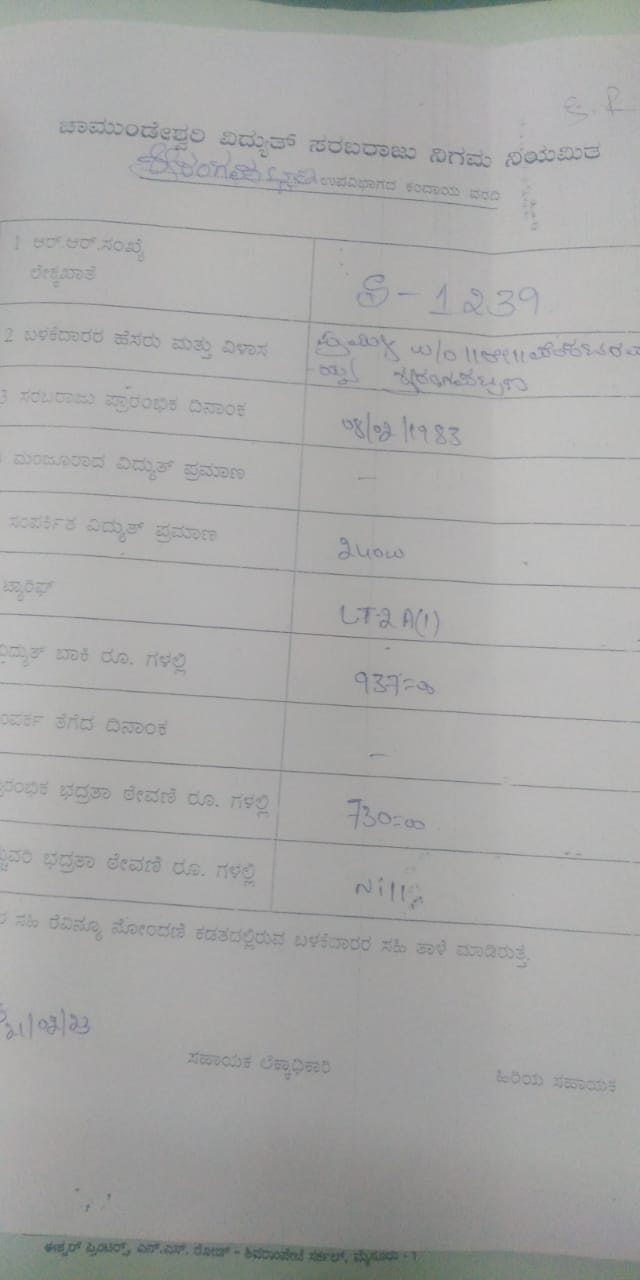 ಚಾಮುಂಡೇಶ್ವರಿ ವಿದ್ಯುತ್ ಸರಬರಾಜು ನಿಗಮ ನಿಯಮಿತ
ಉಪವಿಭಾಗದ ಕಂದಾಯ ವರದಿ
1 ಆರ್.ಆರ್.ಸಂಖ್ಯೆ
ಲೆಕ್ಕಖಾತೆ
- 1239
2 ಬಳಕೆದಾರರ ಹೆಸರು ಮತ್ತು ವಿಳಾಸ
W/O
ಶ್ರೀರಂಗಪಟ್ಟಣ
3 ಸರಬರಾಜು ಪ್ರಾರಂಭಿಕ ದಿನಾಂಕ
08/02/1983
ಮಂಜೂರಾದ ವಿದ್ಯುತ್ ಪ್ರಮಾಣ
—
ಸಂಪರ್ಕಿತ ವಿದ್ಯುತ್ ಪ್ರಮಾಣ
240W
ಟ್ಯಾರಿಫ್
LT-2A(1)
ವಿದ್ಯುತ್ ಬಾಕಿ ರೂ. ಗಳಲ್ಲಿ
937=00
ಸಂಪರ್ಕ ತೆಗೆದ ದಿನಾಂಕ
—
ಭದ್ರತಾ ಠೇವಣಿ ರೂ. ಗಳಲ್ಲಿ
730=00
ಭದ್ರತಾ ಠೇವಣಿ ರೂ. ಗಳಲ್ಲಿ
Nill
ಸಹಿ ರೆವಿನ್ಯೂ ನೋಂದಣಿ ಕಡತದಲ್ಲಿರುವ ಬಳಕೆದಾರರ ಸಹಿ ತಾಳೆ ಮಾಡಿರುತ್ತೆ.
21/02/23
ಸಹಾಯಕ ಲೆಕ್ಕಾಧಿಕಾರಿ
ಹಿರಿಯ ಸಹಾಯಕ
ಈಶ್ವರ್ ಪ್ರಿಂಟರ್ಸ್, ಎನ್.ಎಸ್. ರೋಡ್ - ಶಿವರಾಂಪೇಟೆ ಸರ್ಕಲ್, ಮೈಸೂರು - 1